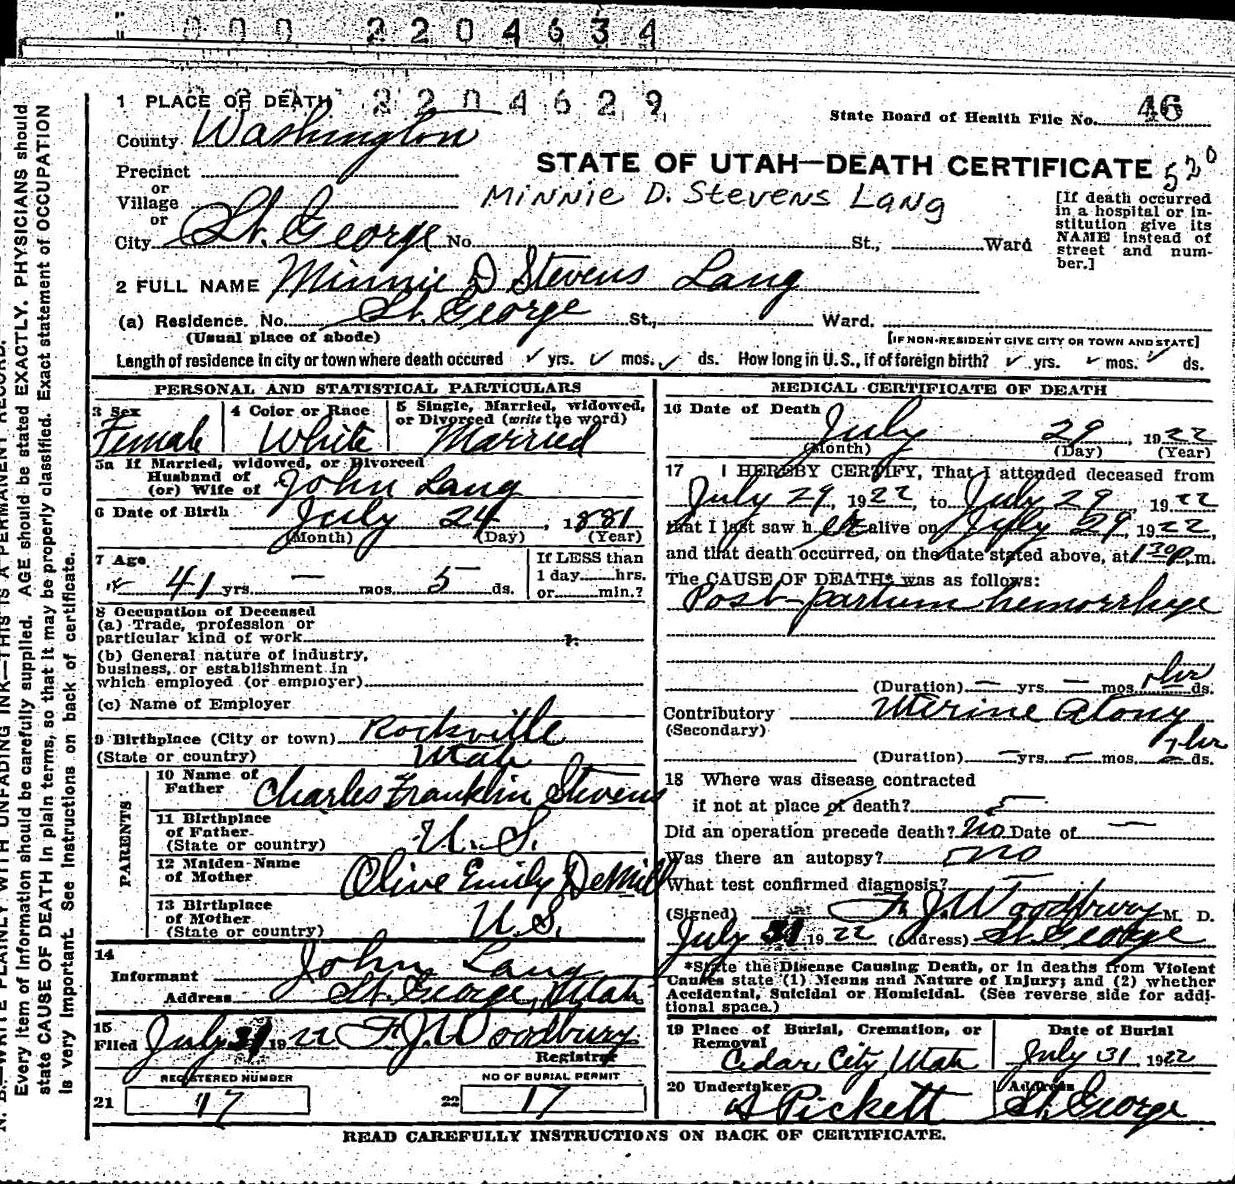 0 0 0 2 2 0 4 6 3 4
2 2 0 4 6 2 9
N. B.—WRITE PLAINLY WITH UNFADING INK—THIS IS A PERMANENT RECORD.
Every item of information should be carefully supplied. AGE should be stated EXACTLY. PHYSICIANS should
state CAUSE OF DEATH in plain terms, so that it may be properly classified. Exact statement of OCCUPATION
is very important. See instructions on back of certificate.
1 PLACE OF DEATH
State Board of Health File No. 46
County Washington
STATE OF UTAH—DEATH CERTIFICATE 520
Precinct
or
Village
Minnie D. Stevens Lang
or
City St. George No. St., Ward
[If death occurred
in a hospital or in-
stitution give its
NAME instead of
street and num-
ber.]
2 FULL NAME Minnie D Stevens Lang
(a) Residence. No. St. George St., Ward.
(Usual place of abode)
[IF NON-RESIDENT GIVE CITY OR TOWN AND STATE]
Length of residence in city or town where death occured ✓ yrs. ✓ mos. ✓ ds. How long in U. S., if of foreign birth? ✓ yrs. ✓ mos. ✓ ds.
PERSONAL AND STATISTICAL PARTICULARS
3 Sex
Female
4 Color or Race
White
5 Single, Married, widowed,
or Divorced (write the word)
Married
5a If Married, widowed, or Divorced
Husband of
(or) Wife of John Lang
6 Date of Birth
July 24, 1881
(Month) (Day) (Year)
7 Age
41 yrs. — mos. 5 ds.
If LESS than
1 day hrs.
or min.?
8 Occupation of Deceased
(a) Trade, profession or
particular kind of work
(b) General nature of industry,
business, or establishment in
which employed (or employer)
(c) Name of Employer
9 Birthplace (City or town) Rockville
(State or country) Utah
PARENTS
10 Name of
Father Charles Franklin Stevens
11 Birthplace
of Father
(State or country) U. S.
12 Maiden Name
of Mother Olive Emily DeMill
13 Birthplace
of Mother
(State or country) U. S.
14
Informant John Lang
Address St. George, Utah
15
Filed July 31 1922 F. J. Woodbury
Registrar
REGISTERED NUMBER
21 17
NO OF BURIAL PERMIT
22 17
MEDICAL CERTIFICATE OF DEATH
16 Date of Death
July 29, 1922
(Month) (Day) (Year)
17 I HEREBY CERTIFY, That I attended deceased from
July 29, 1922, to July 29 1922
that I last saw h er alive on July 29 1922,
and that death occurred, on the date stated above, at 1 30 p.m.
The CAUSE OF DEATH* was as follows:
Post-partum hemorrhge
(Duration) — yrs. — mos. 1 hr ds.
Contributory Uterine Atony
(Secondary)
(Duration) — yrs. — mos. 1 hr ds.
18 Where was disease contracted
if not at place of death?
Did an operation precede death? No Date of —
Was there an autopsy? no
What test confirmed diagnosis? —
(Signed) F. J. Woodbury M. D.
July 31 1922 (Address) St. George
*State the Disease Causing Death, or in deaths from Violent
Causes state (1) Means and Nature of Injury; and (2) whether
Accidental, Suicidal or Homicidal. (See reverse side for addi-
tional space.)
19 Place of Burial, Cremation, or
Removal
Cedar City, Utah
Date of Burial
July 31 1922
20 Undertaker
Pickett
Address
St. George
READ CAREFULLY INSTRUCTIONS ON BACK OF CERTIFICATE.